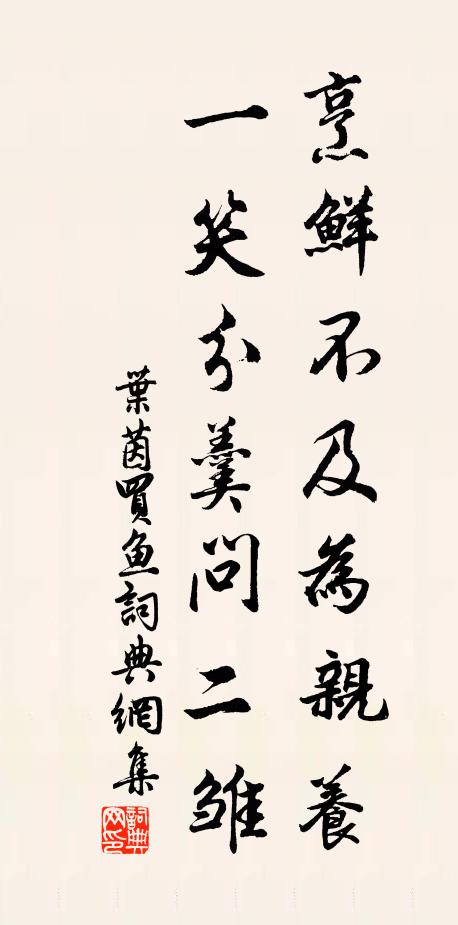 烹鮮不及為親養
一笑分羹問二雏
葉茵買魚詞典網集
詞典
网印